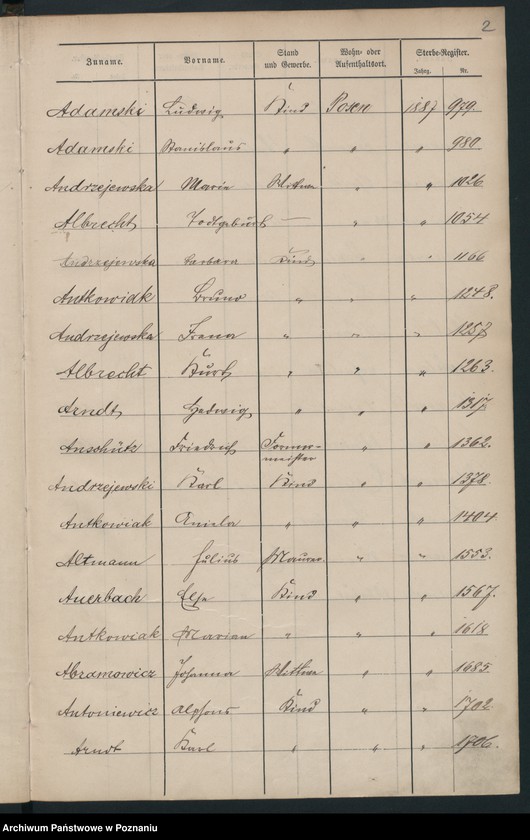 2
Zuname. Vorname. Stand und Gewerbe. Wohn- oder Aufenthaltsort. Sterbe-Register.
Jahrg. Nr.
Adamski Ludwig Kind Posen 1887 979
Adamski Stanislaus " " " 980
Andrzejewska Marie Wittwe " " 1026
Albrecht Todtgeburt — " " 1054
Andrzejewska Barbara Kind " " 1166
Antkowiak Bruno " " " 1248.
Andrzejewska Irena " " " 1257
Albrecht Kurt " " " 1263.
Arndt Hedwig " " " 1317
Anschütz Friedrich Former- " " 1362.
meister
Andrzejewski Karl Kind " " 1378
Antkowiak Aniela " " " 1404
Altmann Julius Maurer " " 1553.
Auerbach Else Kind " " 1567.
Antkowiak Marian " " " 1618
Abramowicz Johanna Wittwe " " 1685
Antoniewicz Alfons Kind " " 1702
Arndt Karl " " " 1706.
Archiwum Państwowe w Poznaniu